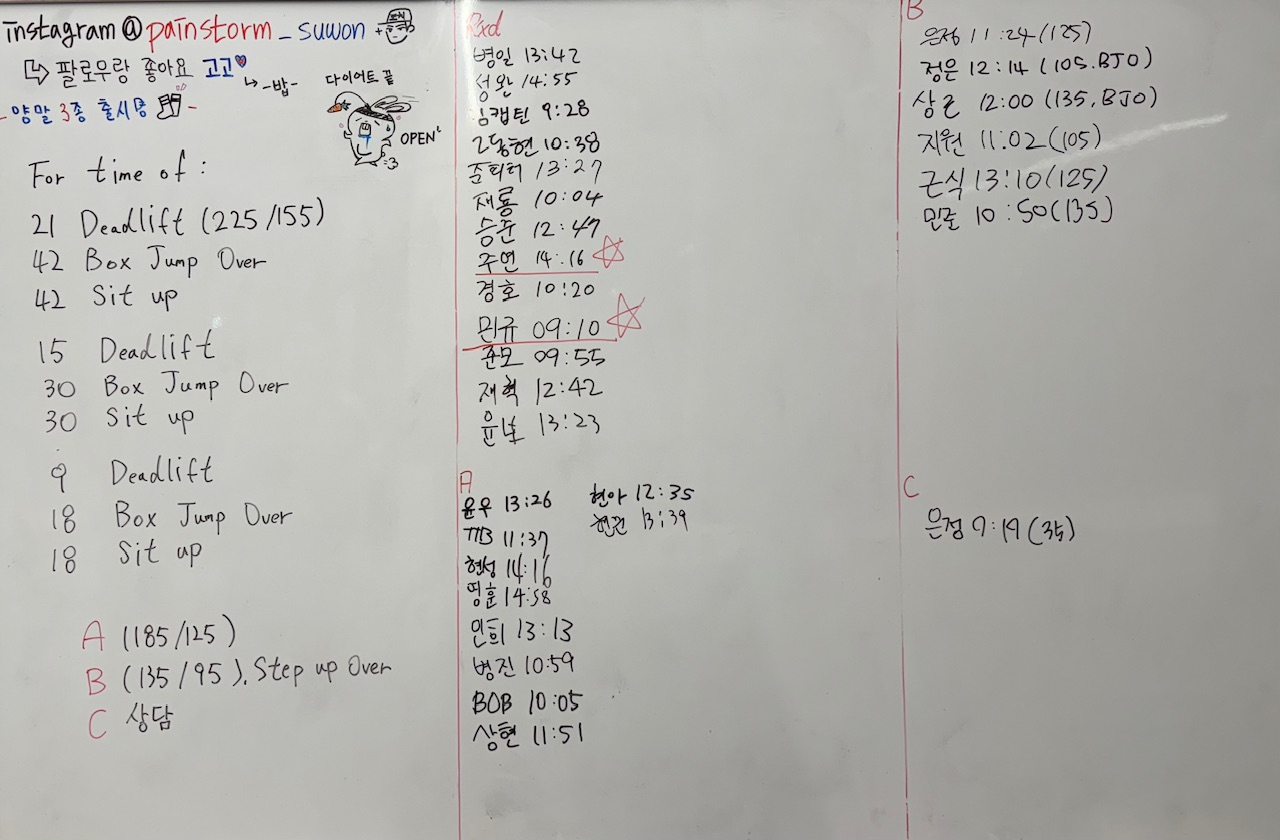 instagram@painstorm_suwon
팔로우랑 좋아요 고고
-밥-
양말 3종 출시
다이어트 끝
OPEN
For time of :
21 Deadlift (225/155)
42 Box Jump Over
42 Sit up
15 Deadlift
30 Box Jump Over
30 Sit up
9 Deadlift
18 Box Jump Over
18 Sit up
A (185/125)
B (135/95), Step up Over
C 상담
Rxd
병일 13:42
성완 14:55
심캡틴 9:28
고동현 10:38
준회터 13:27
재룡 10:04
승준 12:47
주연 14:16
경호 10:20
민규 09:10
준모 09:55
재혁 12:42
13:23
A
윤우 13:26
TTB 11:37
현성 14:16
영훈 14:58
민희 13:13
병진 10:59
BOB 10:05
상현 11:51
현아 12:35
13:39
B
은정 11:24(125)
정은 12:14 (105.BJO)
상근 12:00 (135, BJO)
지원 11:02(105)
근식 13:10(125)
민로 10:50(135)
C
은정 9:19(35)